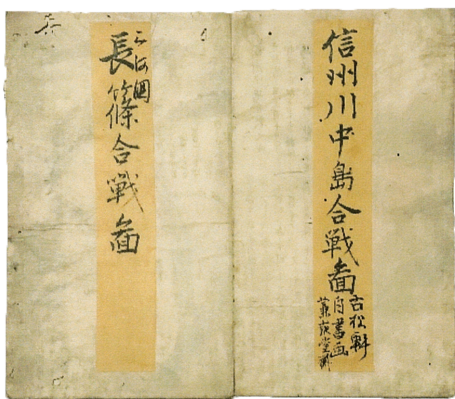 信州川中島合戦畵
古松軒
自書画
三河国
長篠合戦畵